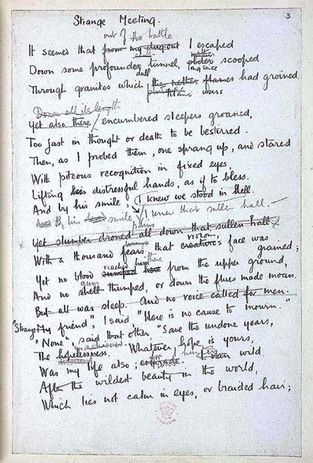 3.
Strange Meeting.
out of the battle
It seems that from my dug-out I escaped
Down some profounder tunnel, older scooped
long since
dull
Through granites which the nether flames had groined
titanic wars
Down all its length
Yet also there encumbered sleepers groaned,
Too fast in thought or death to be bestirred.
Then, as I probed them, one sprang up, and stared
With piteous recognition in fixed eyes,
Lifting his distressful hands, as if to bless.
And by his smile, I knew we stood in Hell.
And by his smile, I knew that sullen hall.
Yet slumber droned all down that sullen hall.
vision's
With a thousand fears that creature's face was grained;
reached him there
Yet no blood from the upper ground,
guns
And no shell thumped, or down the flues made moan.
But all was sleep. And no voice called for men.
Strange "My friend," I said "Here is no cause to mourn."
"None", said that other "Save the undone years,
The hopelessness. Whatever hope is yours,
Was my life also; I went hunting wild
After the wildest beauty in the world,
Which lies not calm in eyes, or braided hair;